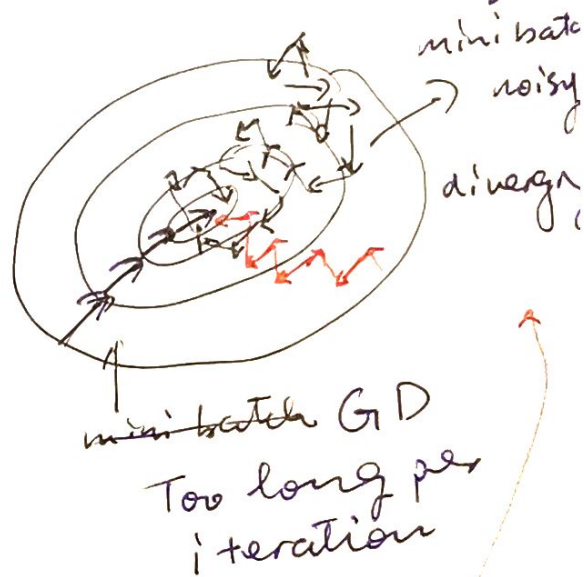 mini batc
noisy
diverg
mini batch GD
Too long per
iteration